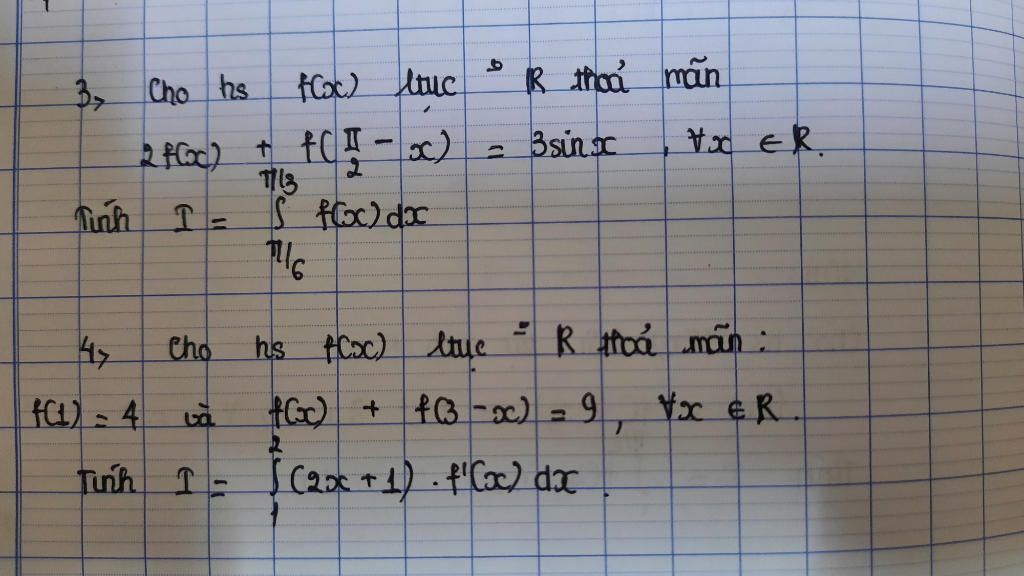 3, Cho hs f(x) ltục R thoả mãn
2f(x) + f(π/2 - x) = 3sinx , ∀x ∈ R.
Tính I = ∫_{π/6}^{π/3} f(x)dx
4, Cho hs f(x) ltục R thoả mãn :
f(1) = 4 và f(x) + f(3 - x) = 9 , ∀x ∈ R .
Tính I = ∫_{1}^{2} (2x + 1) . f'(x) dx .